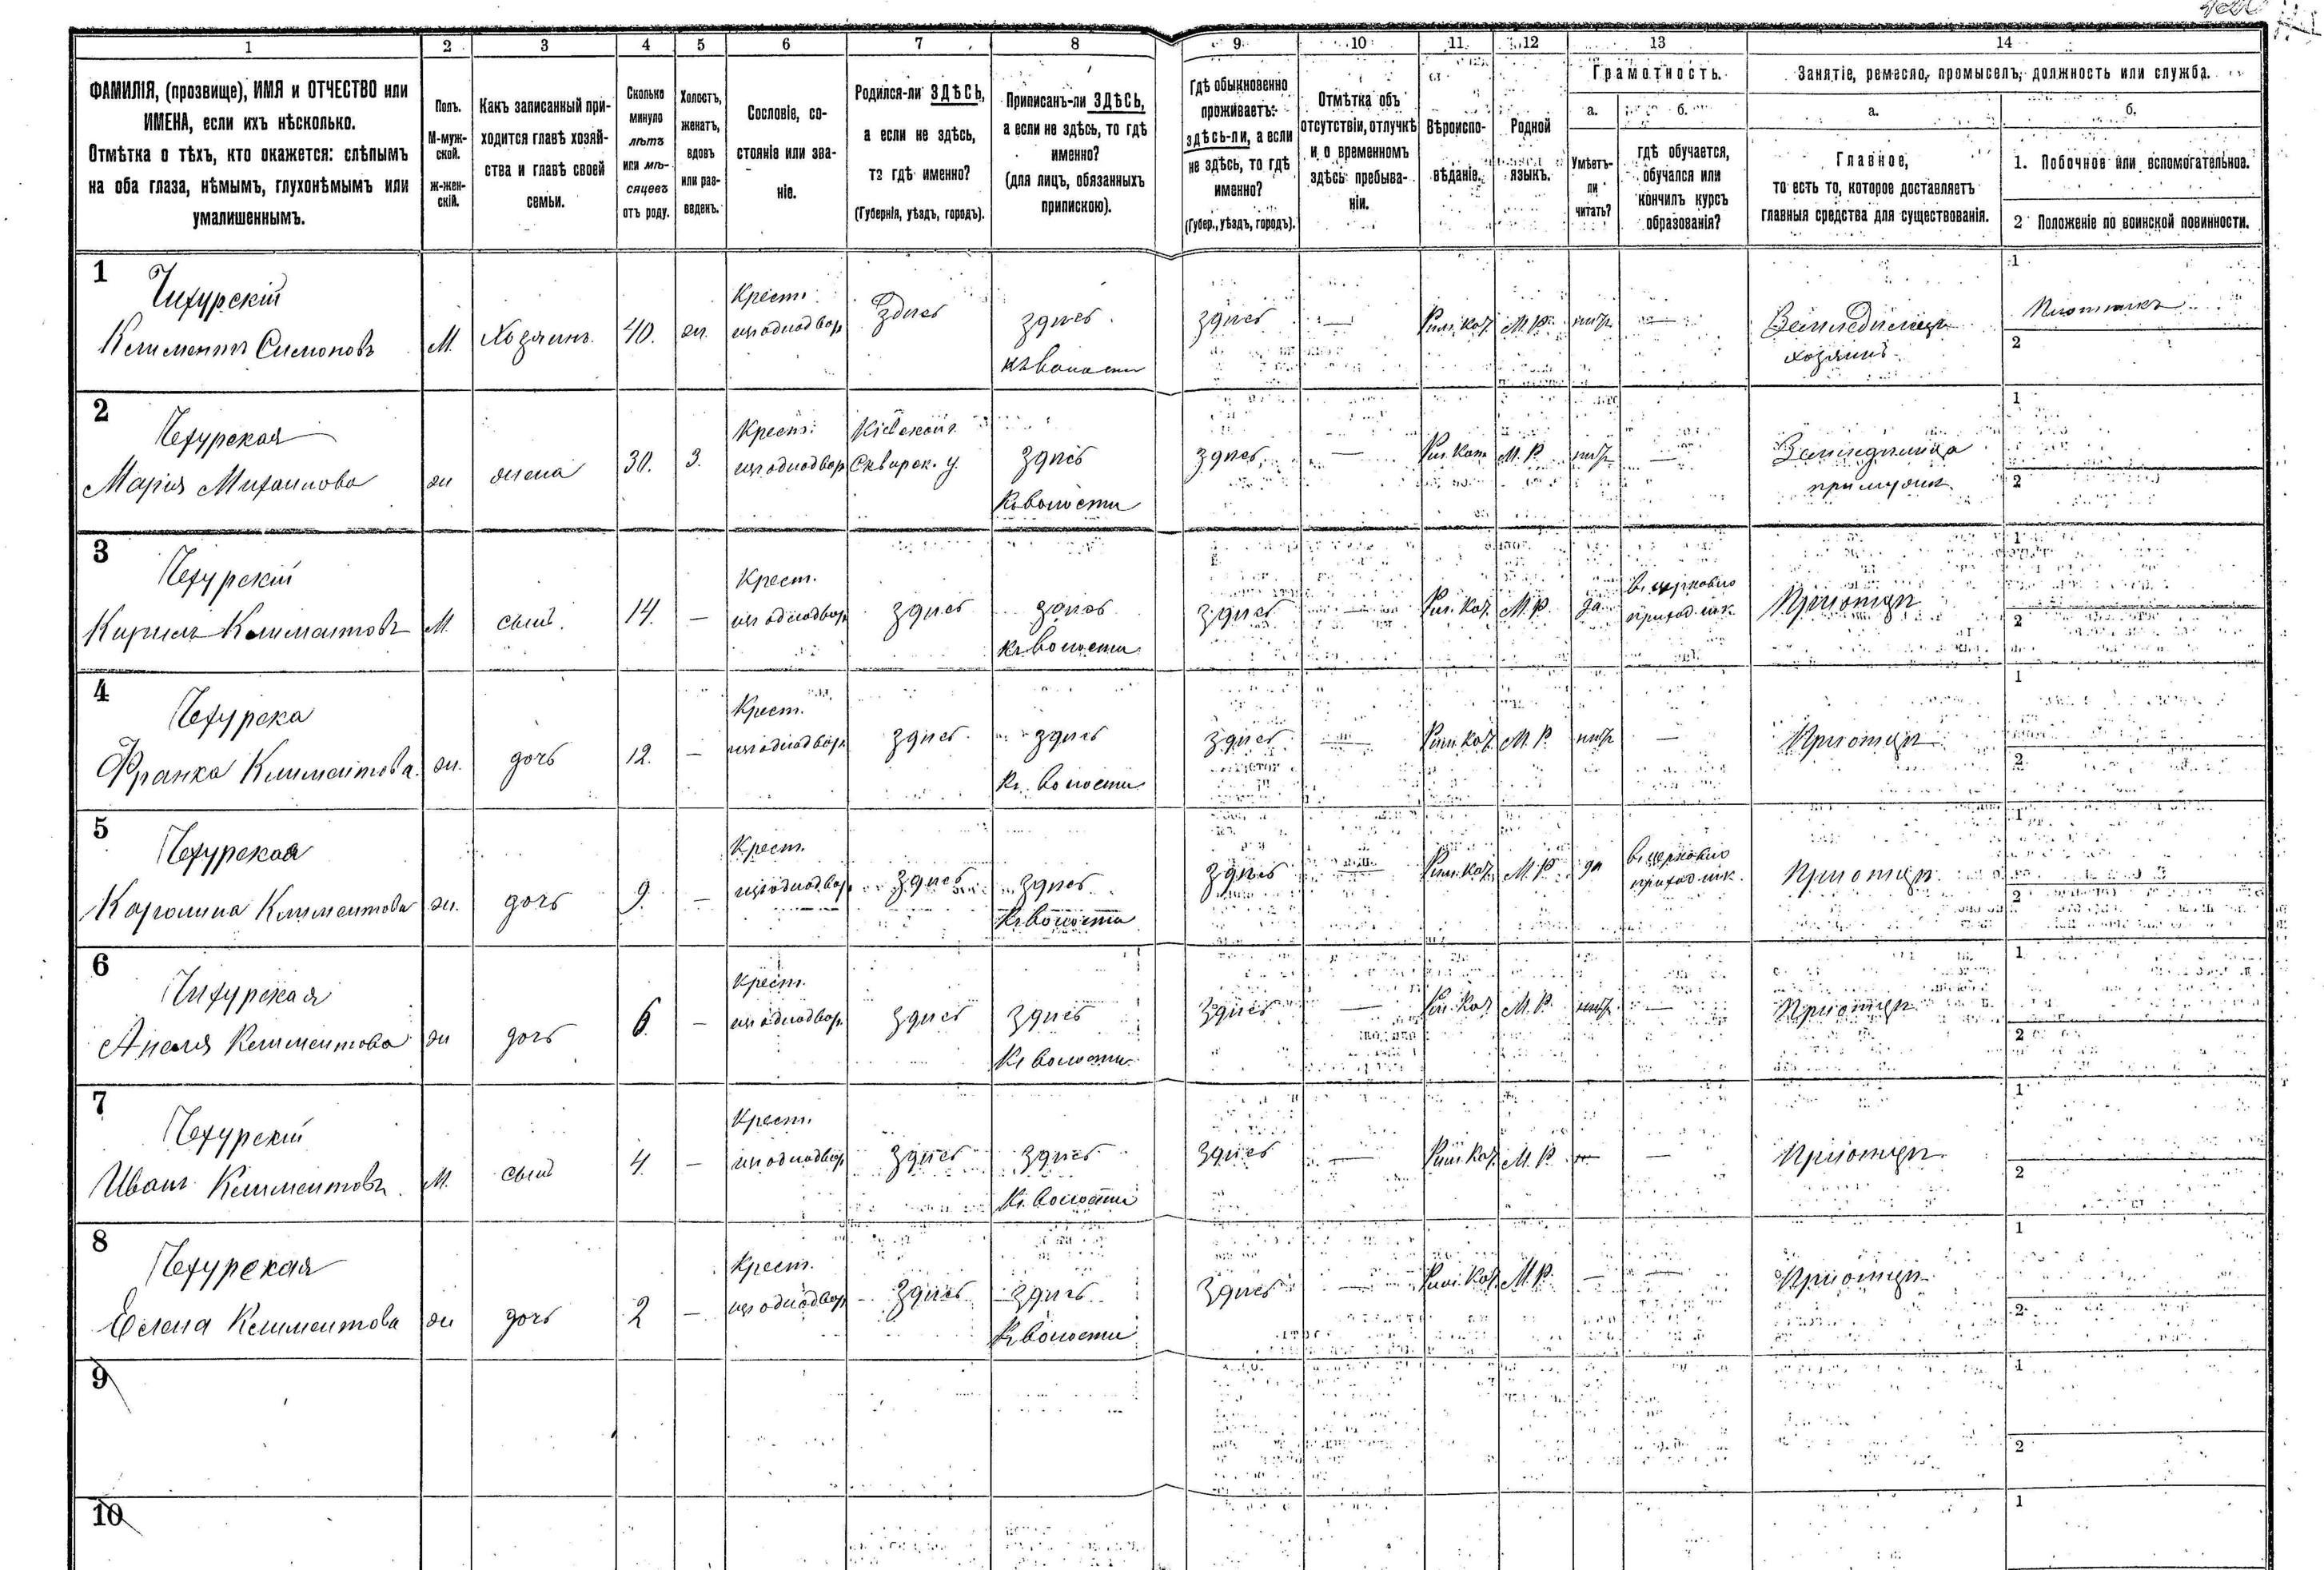 1 2 3 4 5 6 7 8 9 10 11 12 13 14
ФАМИЛІЯ, (прозвище), ИМЯ и ОТЧЕСТВО или
ИМЕНА, если ихъ нѣсколько.
Отмѣтка о тѣхъ, кто окажется: слѣпымъ
на оба глаза, нѣмымъ, глухонѣмымъ или
умалишеннымъ.
Полъ.
М-муж-
ской.
Ж-жен-
скій.
Какъ записанный при-
ходится главѣ хозяй-
ства и главѣ своей
семьи.
Сколько
минуло
лѣтъ
или мѣ-
сяцевъ
отъ роду.
Холостъ,
женатъ,
вдовъ
или раз-
веденъ.
Сословіе, со-
стояніе или зва-
ніе.
Родился-ли ЗДѢСЬ,
а если не здѣсь,
то гдѣ именно?
(Губернія, уѣздъ, городъ).
Приписанъ-ли ЗДѢСЬ,
а если не здѣсь, то гдѣ
именно?
(для лицъ, обязанныхъ
припискою).
Гдѣ обыкновенно
проживаетъ:
здѣсь-ли, а если
не здѣсь, то гдѣ
именно?
(Губер., уѣздъ, городъ).
Отмѣтка объ
отсутствіи, отлучкѣ
и о временномъ
здѣсь пребыва-
ніи.
Вѣроиспо-
вѣданіе.
Родной
языкъ.
Грамотность.
а.
Умѣетъ-
ли
читать?
б.
гдѣ обучается,
обучался или
кончилъ курсъ
образованія?
Занятіе, ремесло, промыселъ, должность или служба.
а.
Главное,
то есть то, которое доставляетъ
главныя средства для существованія.
б.
1. Побочное или вспомогательное.
2 Положеніе по воинской повинности.
1
Чихурскій
Климентъ Симоновъ
М.
Хозяинъ.
40.
ж.
Крест.
изъ однодвор.
Здѣсь
здѣсь
къ волости
здѣсь
—
Рим. Кат.
М. Р.
нѣтъ
—
Земледѣлецъ
хозяинъ.
1
Плотникъ
2
2
Чехурская
Марія Михаилова
ж
жена
30.
З.
Крест.
изъ однодвор.
Кіевской г.
Сквирск. у.
здѣсь
Къ волости
здѣсь
—
Рим. Кат.
М. Р.
нѣтъ
—
Земледѣлица
при мужѣ
1
2
3
Чехурскій
Кирилъ Климентовъ
М.
сынъ.
14.
—
Крест.
изъ однодвор.
здѣсь
здѣсь
къ волости
здѣсь
—
Рим. Кат.
М. Р.
да
въ церковно
приход. шк.
При отцѣ
1
2
4
Чехурска
Франка Климентова.
ж.
дочь
12.
—
Крест.
изъ однодвор.
здѣсь
здѣсь
Къ волости
здѣсь
—
Рим. Кат.
М. Р.
нѣтъ
—
При отцѣ
1
2
5
Чехурская
Каролина Климентова
ж.
дочь
9.
—
Крест.
изъ однодвор.
здѣсь
здѣсь
Къ волости
здѣсь
—
Рим. Кат.
М. Р.
да
въ церковно
приход. шк.
При отцѣ
1
2
6
Чихурская
Анеля Климентова
ж
дочь
6.
—
Крест.
изъ однодвор.
здѣсь
здѣсь
Къ волости
здѣсь
—
Рим. Кат
М. Р.
нѣтъ
—
При отцѣ
1
2
7
Чехурскій
Иванъ Климентовъ
М.
сынъ
4.
—
Крест.
изъ однодвор.
здѣсь
здѣсь
Къ волости
здѣсь
—
Рим. Кат.
М. Р.
—
—
При отцѣ
1
2
8
Чехурская
Елена Климентова
ж
дочь
2
—
Крест.
изъ однодвор.
здѣсь
здѣсь
Къ волости
здѣсь
—
Рим. Кат.
М. Р.
—
—
При отцѣ
1
2
9
1
2
10
1